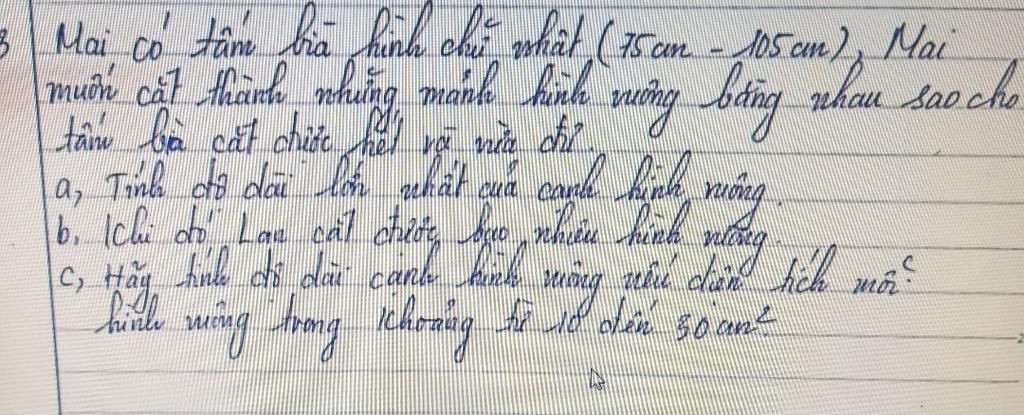 3 Mai có tấm bìa hình chữ nhật (75 cm - 105 cm), Mai
muốn cắt thành những mảnh hình vuông bằng nhau sao cho
tấm bìa cắt được hết và vừa đủ.
a, Tính độ dài lớn nhất của cạnh hình vuông.
b, Khi đó, Lan cắt được bao nhiêu hình vuông.
c, Hãy tính độ dài cạnh hình vuông nếu diện tích mỗi
hình vuông trong khoảng từ 10 đến 30 cm²